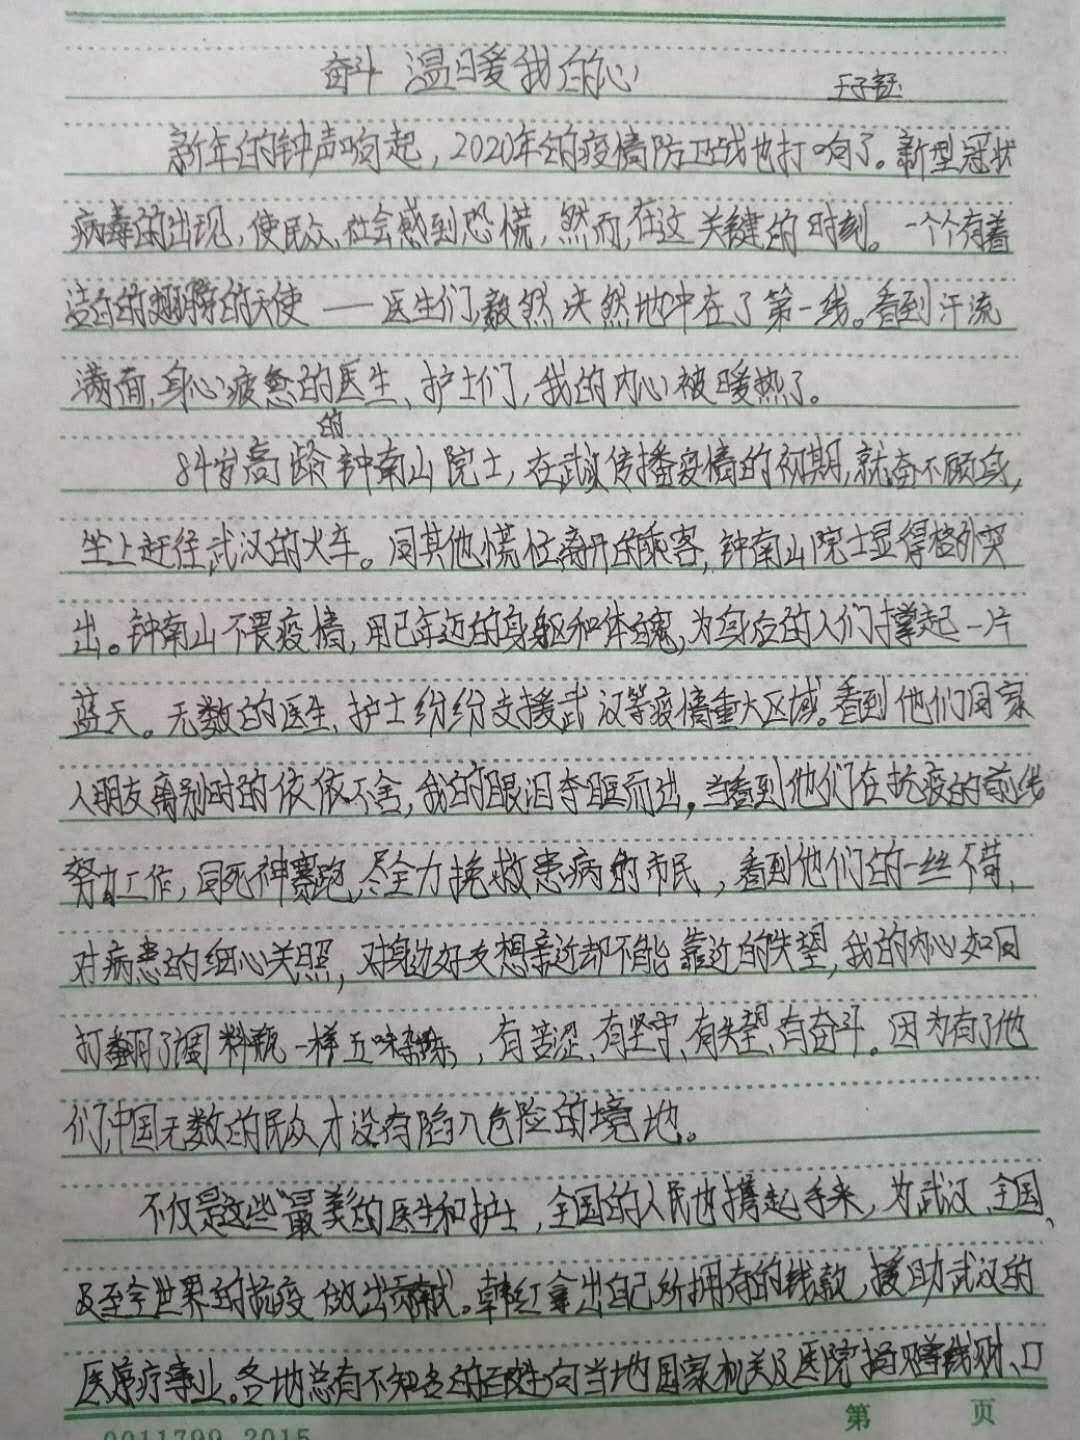 奋斗 温暖我的心
新年的钟声响起，2020年的疫情防卫战也打响了。新型冠状
病毒的出现，使民众、社会感到恐慌，然而，在这关键的时刻。一个个有着
洁白的翅膀的天使——医生们，毅然决然地冲在了第一线。看到汗流
满面，身心疲惫的医生、护士们，我的内心被暖热了。
84岁高龄的钟南山院士，在武汉传播疫情的初期，就奋不顾身，
坐上赶往武汉的火车。同其他慌忙离开的乘客，钟南山院士显得格外突
出。钟南山不畏疫情，用已年迈的身躯和体魄，为身后的人们撑起一片
蓝天。无数的医生、护士纷纷支援武汉等疫情重大区域。看到他们同家
人朋友离别时的依依不舍，我的眼泪夺眶而出。当看到他们在抗疫的前线
努力工作，同死神赛跑，尽全力挽救患病的市民，看到他们的一丝不苟，
对病患的细心关照，对身边好友想亲近却不能靠近的失望，我的内心如同
打翻了调料瓶一样五味杂陈，有苦涩、有坚守、有失望、有奋斗。因为有了他
们，中国无数的民众才没有陷入危险的境地。
不仅是这些“最美”的医生和护士，全国的人民也携起手来，为武汉、全国、
及至全世界的抗疫做出贡献。韩红拿出自己所拥有的钱款，援助武汉的
医疗事业。各地总有不知名的百姓向当地国家机关及医院捐赠钱财、口
第 页
0011799 2015